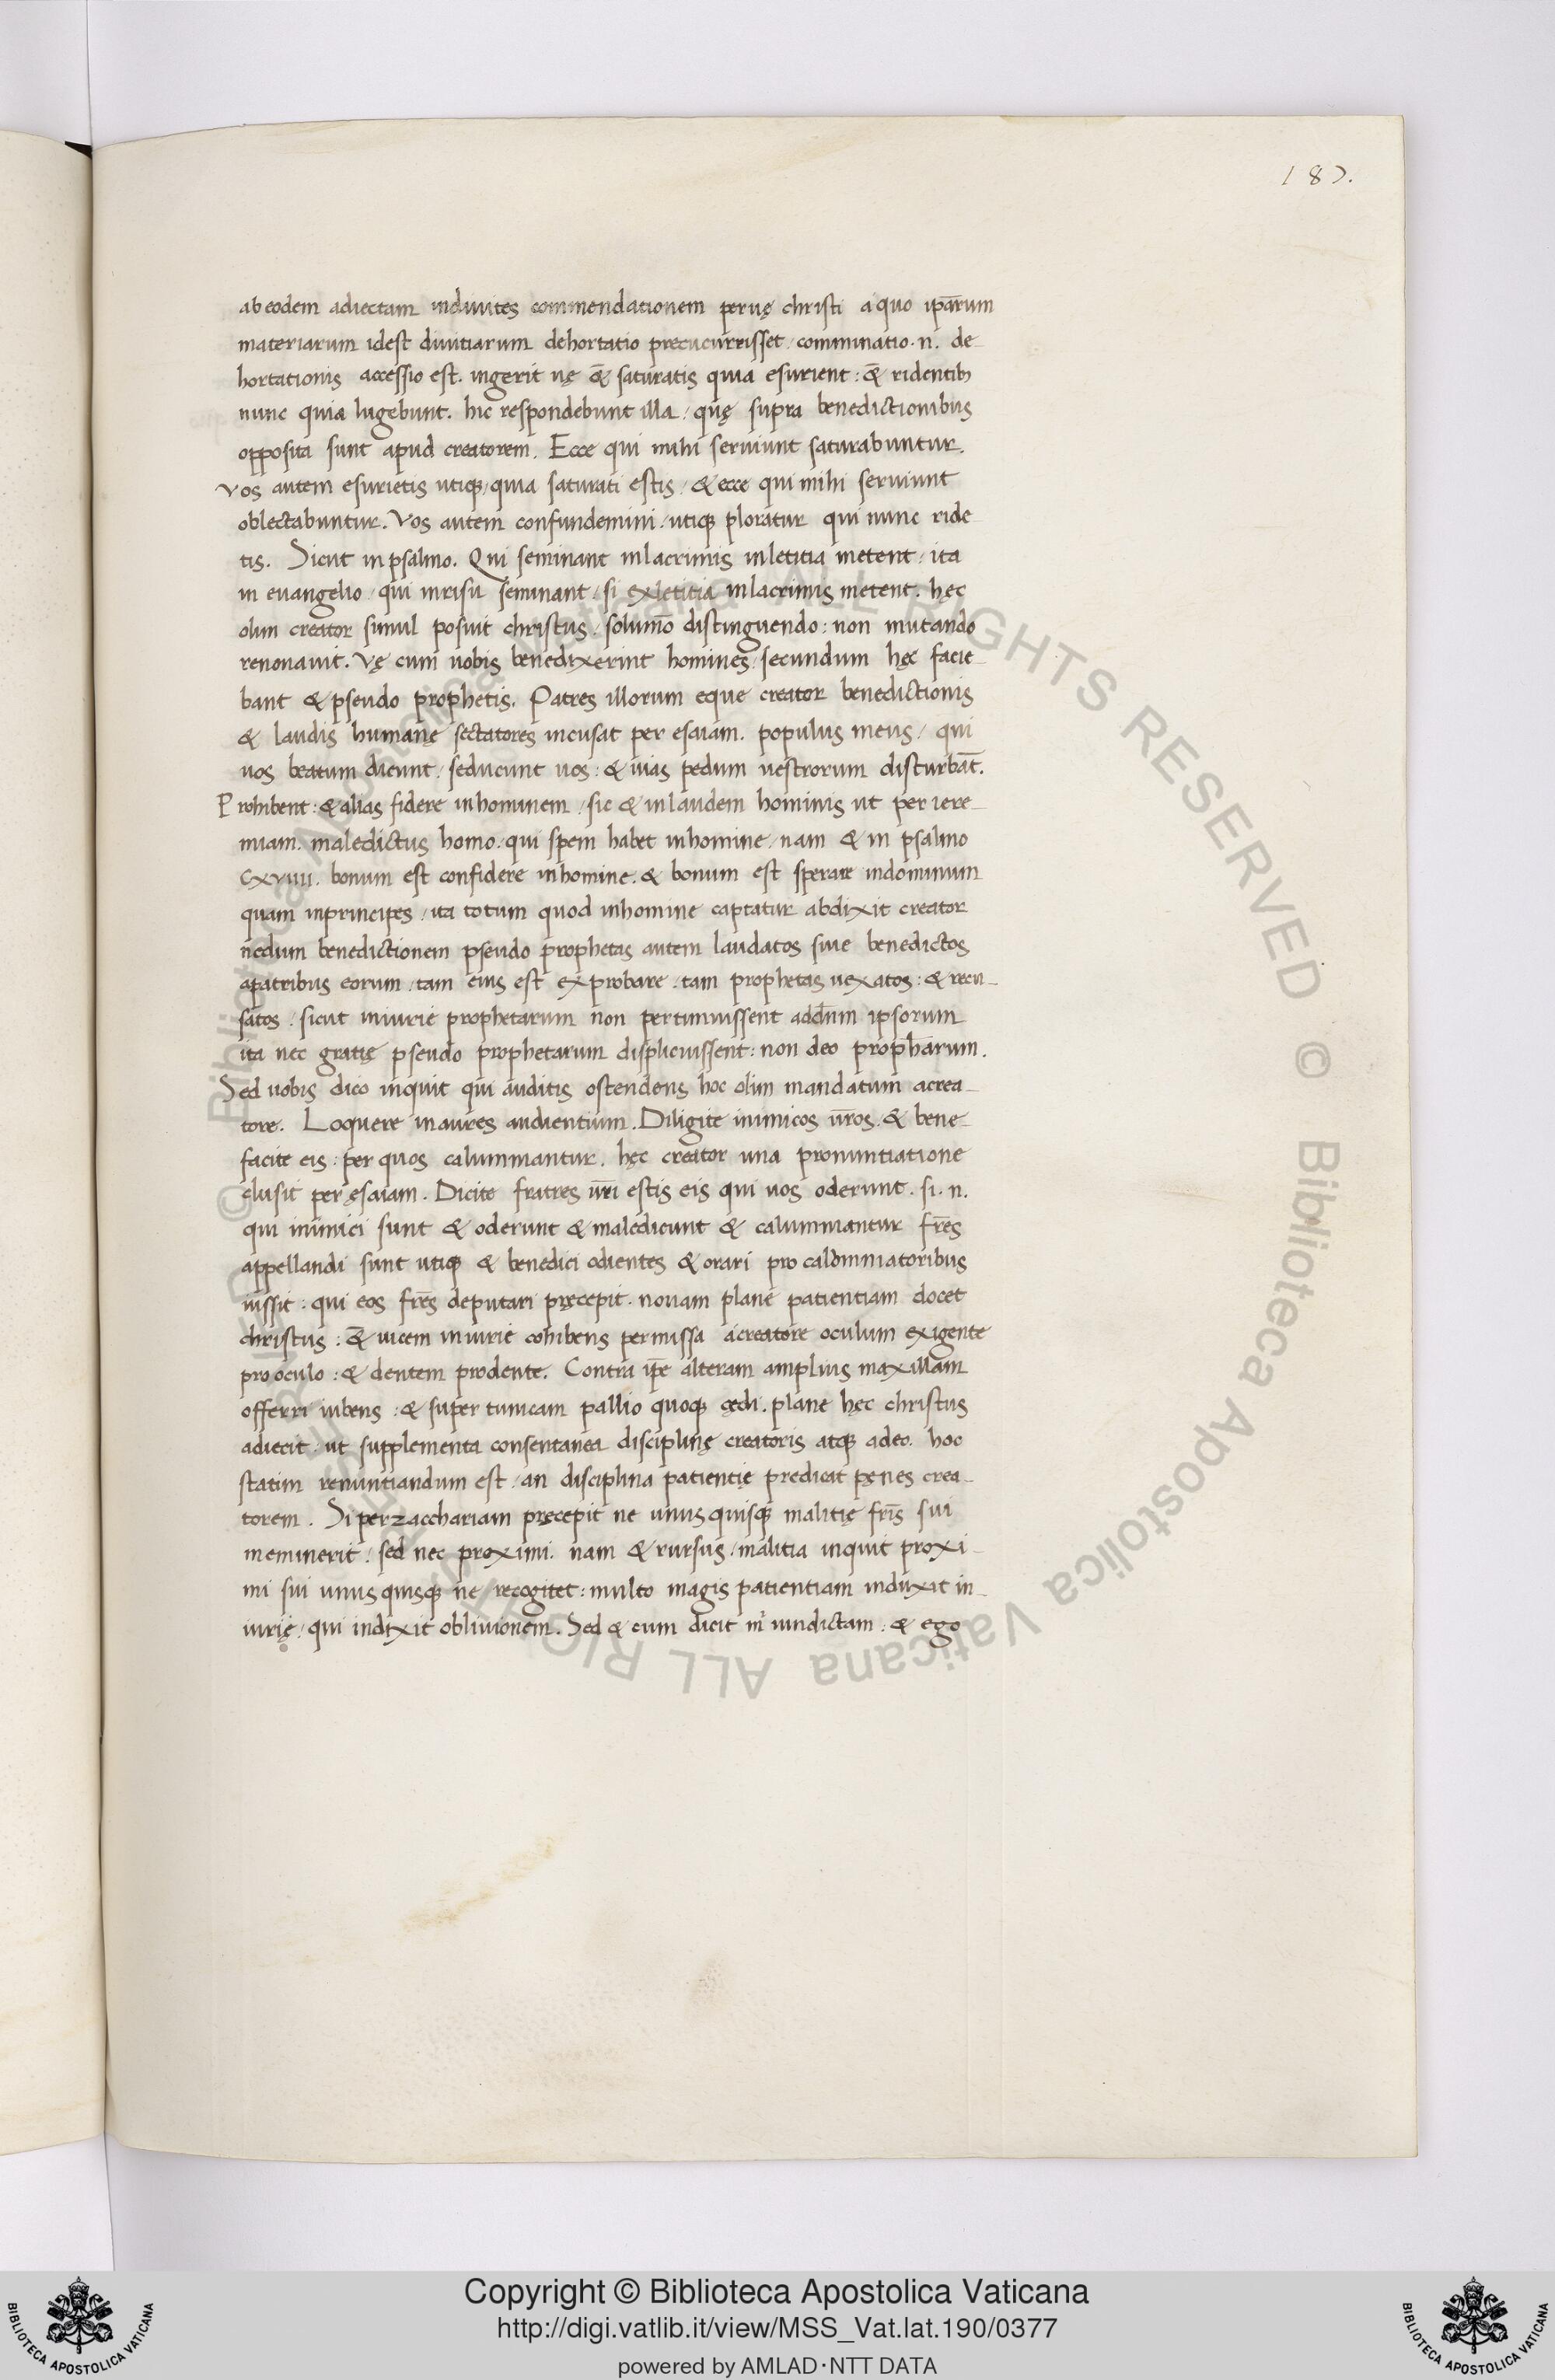 187.
ab eodem adiectam indiuites commendationem per uę christi a quo ip̄arum
materiarum idest diuitiarum dehortatio precucurrisset / comminatio .n. de-
hortationis accessio est. ingerit uę & saturatis quia esurient : & ridentib;
nunc quia lugebunt. hic respondebunt illa / quę supra benedictionibus
opposita sunt apud creatorem. Ecce qui mihi seruiunt saturabuntur.
Vos autem esurietis utiq; / quia saturati estis / & ecce qui mihi seruiunt
oblectabuntur. Vos autem confundemini / utiq; ploratur qui nunc ride
tis. Sicut in psalmo. Qui seminant inlacrimis inletitia metent / ita
in euangelio / qui inrisu seminant / si exletitia inlacrimis metent. hęc
olim creator simul posuit christus / solum̄o distinguendo : non mutando
renonauit. Vę cum uobis benedixerint homines / secundum hęc facie-
bant & pseudo prophetis. Patres illorum eque creator benedictionis
& laudis humanę sectatores incusat per esaiam. populus meus / qui
uos beatum dicunt / seducunt uos : & uias pedum uestrorum disturbāt.
Prohibent : & alias fidere inhominem / sic & inlaudem hominis ut per iere-
miam. maledictus homo . qui spem habet inhomine / nam & in psalmo
cxviiii. bonum est confidere inhomine . & bonum est sperare indominum
quam inprincipes / ita totum quod inhomine captatur abdixit creator
nedum benedictionem pseudo prophetas autem laudatos siue benedictos
apatribus eorum / tam eius est exprobare . tam prophetas uexatos : & recu-
satos / sicut iniurie prophetarum non pertinuissent add̄um ipsorum
ita nec gratię pseudo prophetarum displicuissent : non deo prophārum.
Sed uobis dico inquit qui auditis ostendens hoc olim mandatum acrea-
tore. Loquere inaures audientium. Diligite inimicos ūros. & bene-
facite eis : per quos calumniantur. hęc creator una pronuntiatione
clusit per ęsaiam. Dicite fratres ūri estis eis qui uos oderunt. si .n.
qui inimici sunt & oderunt & maledicunt & calumniantur fr̄es
appellandi sunt utiq; & benedici odientes & orari pro calomniatoribus
iussit : qui eos fr̄es deputari pręcepit. nouam plane patientiam docet
christus : & uicem iniurie cohibens permissa acreatore oculum exigente
prooculo : & dentem prodente. Contra ip̄e alteram amplius maxillam
offerri iubens : & super tunicam pallio quoq; cędi. plane hęc christus
adiecit . ut supplementa consentanea disciplinę creatoris atq; adeo. hoc
statim renuntiandum est / an disciplina patientię predicat pęnes crea-
torem. Si perzacchariam pręcepit ne unusquisq; malitię fr̄is sui
meminerit / sed nec proximi. nam & rursus / malitia inquit proxi-
mi sui unus quisq; ne recogitet : multo magis patientiam indixit in-
iurię / qui indixit obliuionem. Sed & cum dicit m̄ uindictam : & ego
© Biblioteca Apostolica Vaticana ALL RIGHTS RESERVED
© Biblioteca Apostolica Vaticana ALL RIGHTS RESERVED
BIBLIOTECA APOSTOLICA VATICANA
Copyright © Biblioteca Apostolica Vaticana
http://digi.vatlib.it/view/MSS_Vat.lat.190/0377
powered by AMLAD·NTT DATA
BIBLIOTECA APOSTOLICA VATICANA